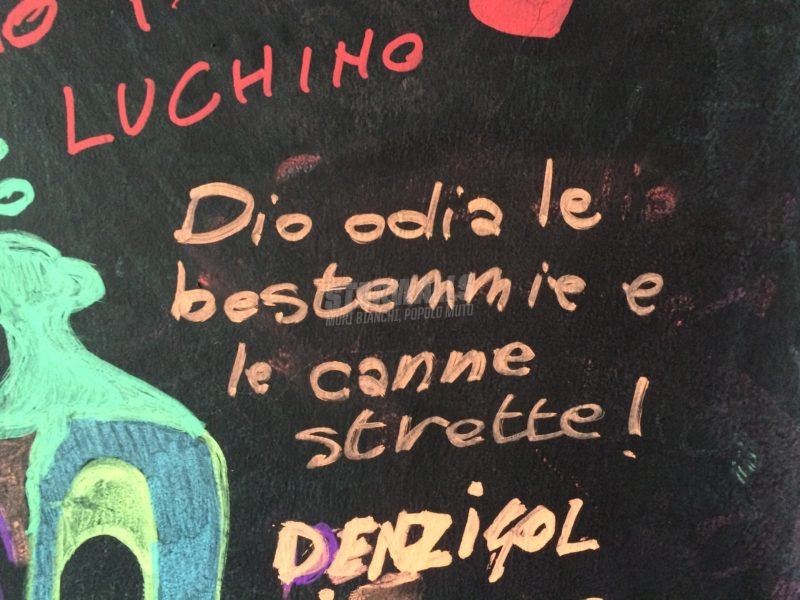 LUCHINO
Dio odia le
bestemmie e
le canne
strette!
MURI BIANCHI, POPOLO MUTO
DENZIGOL